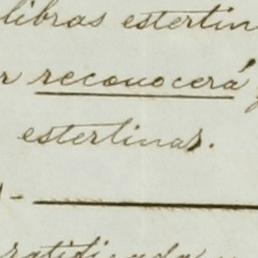 libras esterlin
r reconocerá y
esterlinas.
ratificada